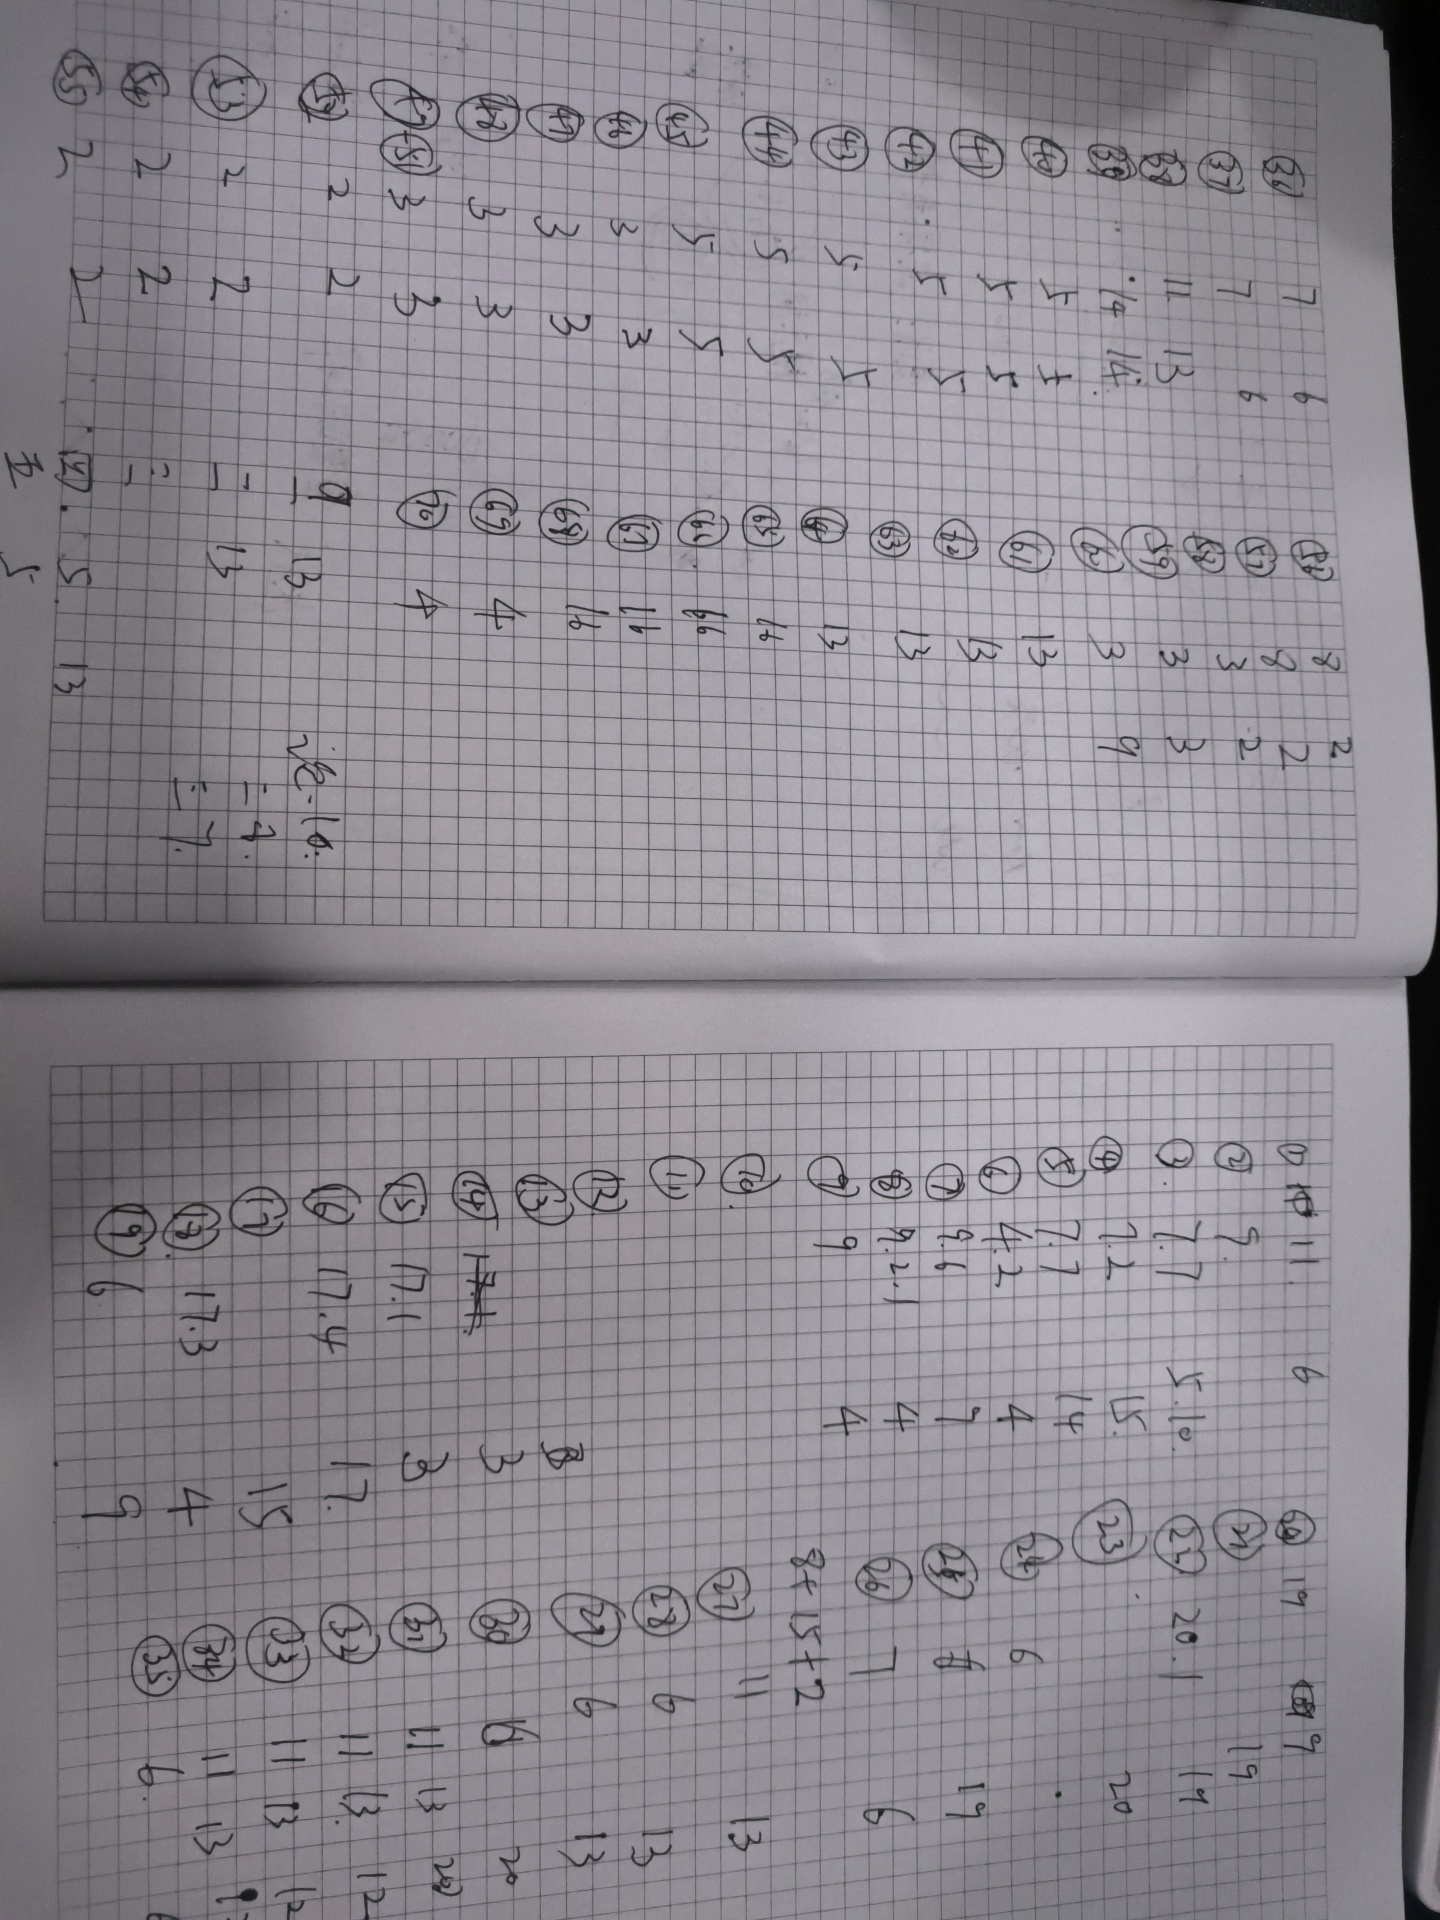 ㊱ 7 6
㊲ 7 6
㊳ 11 13
㊴ 14 14
㊵ 5 5
㊶ 5 5
㊷ 5 5
㊸ 5 5
㊹ 5 5
㊺ 5 5
㊻ 3 3
㊼ 3 3
㊽ 3 3
(51) 3 3
(52) 2 2
(53) 2 2
(54) 2 2
(55) 2 2
8 2
(57) 8 2
(58) 3 2
(59) 3 3
(60) 3 9
(61) 13
(62) 13
(63) 13
(64) 13
(65) 16
(66) 66
(67) 16
(68) 16
(69) 4
(70) 4
一 13
二 13 二 7.
三 三 7.
四. 5. 13
五 5
① 11. 6
② 9.
③ 7.7 5.10.
④ 7.2 15.
⑤ 7.7 14
⑥ 4.2 4
⑦ 9.6 7
⑧ 9.2.1 4
⑨ 9 4
⑩
⑪
⑫
⑬
⑭ 3
⑮ 17.1 3
⑯ 17.4 17.
⑰ 15
⑱ 17.3 4
⑲ 6 9
⑳ 19 9
㉑ 19
㉒ 20.1 19
㉓ 20
㉔ 6
㉕ 19
㉖ 7 6
8+15+2
㉗ 11 13
㉘ 6 13
㉙ 6 13
㉚ 20
㉛ 11 13 20
㉜ 11 13. 12
㉝ 11 13 12
㉞ 11 13
㉟ 6.